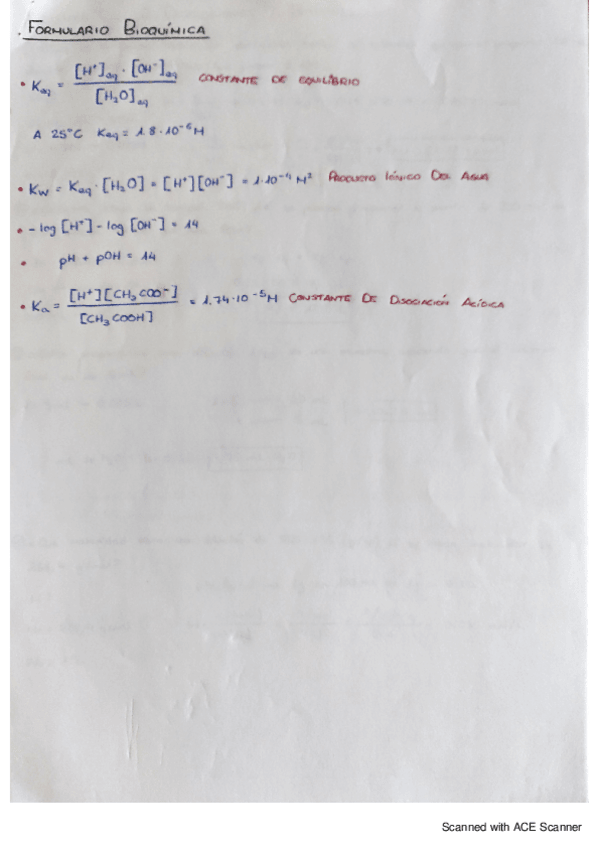 . FORMULARIO BIOQUÍMICA
• Keq = [H⁺]eq · [OH⁻]eq / [H₂O]eq CONSTANTE DE EQUILÍBRIO
A 25°C Keq = 1.8·10⁻⁶M
• KW = Keq · [H₂O] = [H⁺][OH⁻] = 1·10⁻⁴ M² PRODUCTO IÓNICO DEL AGUA
• -log [H⁺] - log [OH⁻] = 14
• pH + pOH = 14
• Ka = [H⁺][CH₃COO⁻] / [CH₃COOH] = 1.74·10⁻⁵M CONSTANTE DE DISOCIACIÓN ACÍDICA
Scanned with ACE Scanner